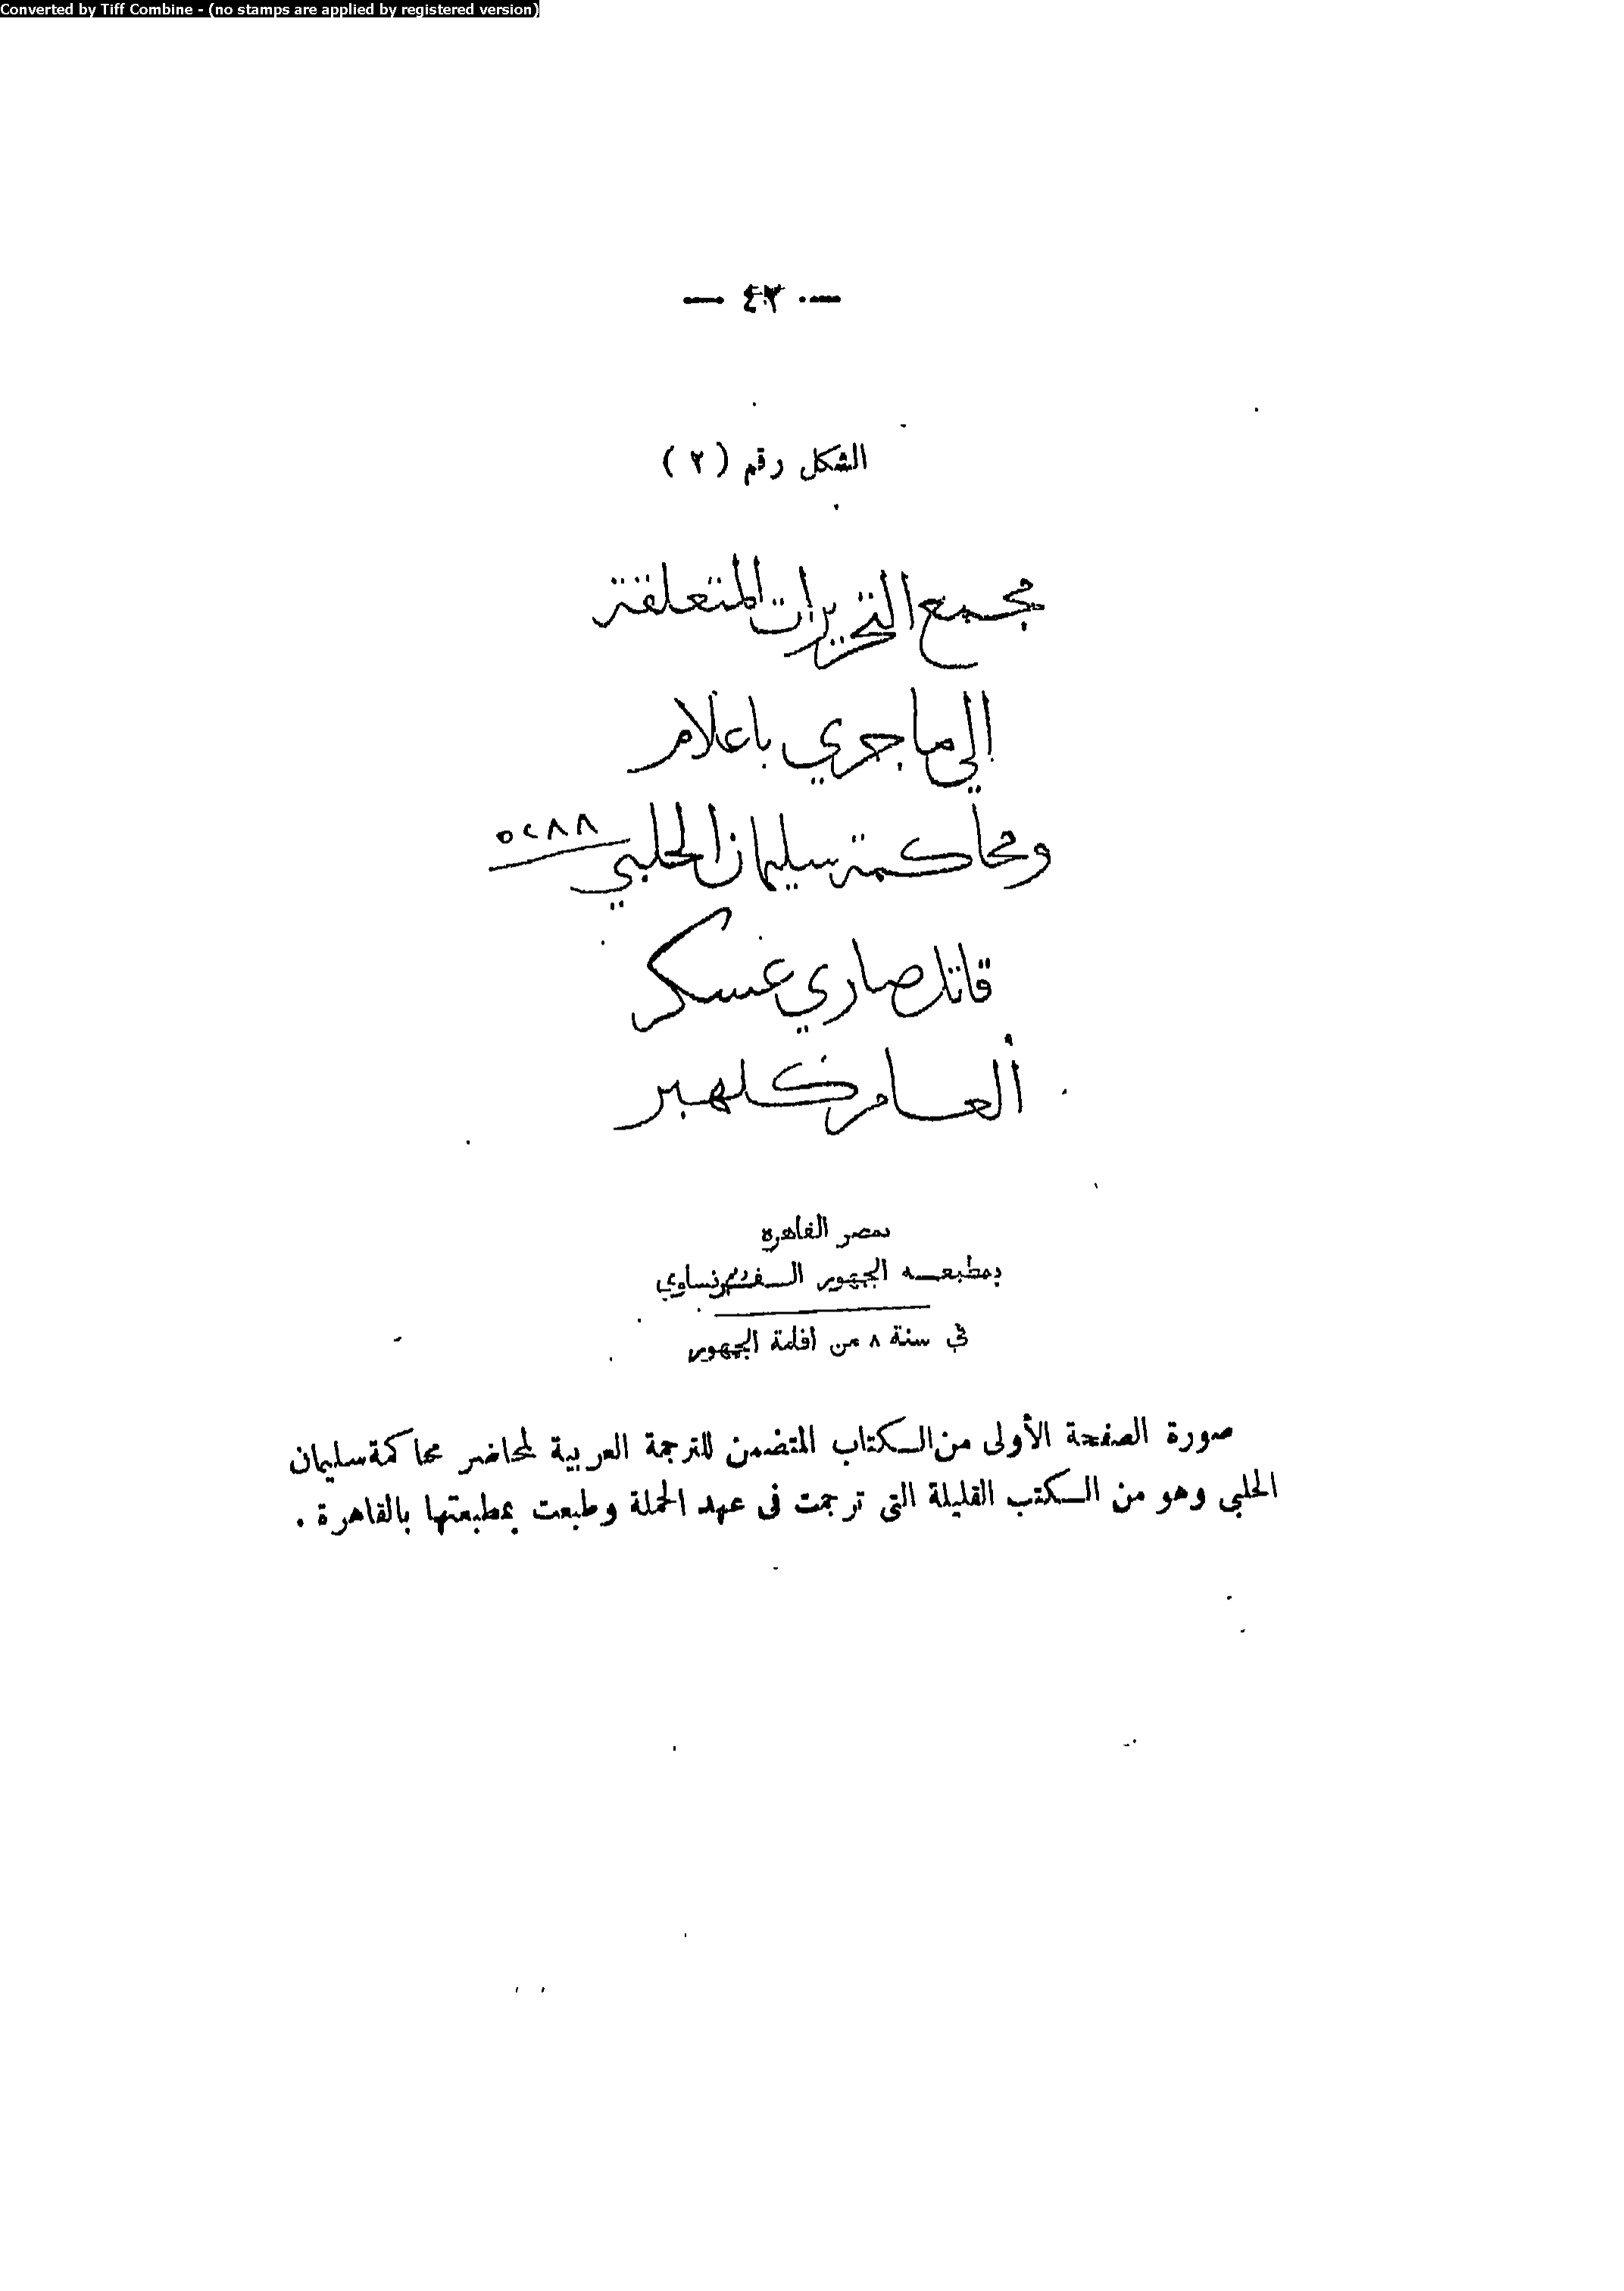 Converted by Tiff Combine - (no stamps are applied by registered version)
— ٤٣ —
الشكل رقم (٢)
مجمع التحريرات المتعلقة
الي ما جري باعلام
ومحاكمة سليمان الحلبي
٥٢٨٨
قاتل صاري عسكر
العام كلهبر
بمصر القاهرة
بمطبعه الجمهور الفرنساوي
في سنة ٨ من اقامة الجمهور
صورة الصفحة الأولى من الكتاب المتضمن للترجمة العربية لمحاضر محاكمة سليمان
الحلبي وهو من الكتب القليلة التى ترجمت فى عهد الحملة وطبعت بمطبعتها بالقاهرة .